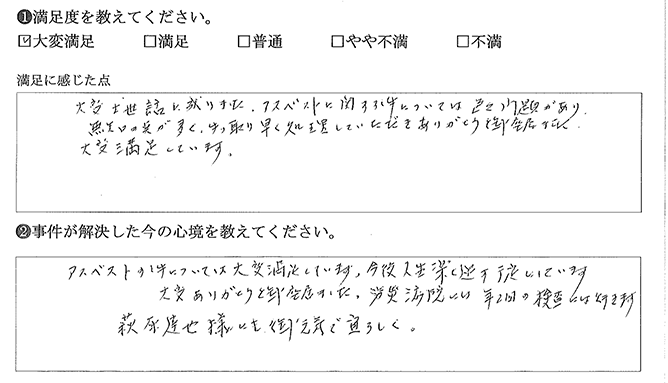 ❶満足度を教えてください。
☑大変満足 □満足 □普通 □やや不満 □不満
満足に感じた点
大変お世話に成りました。アスベストに関する件については色々問題があり
無知の為が多く、手っ取り早く処理していただきありがとう御座居ました
大変満足しています。
❷事件が解決した今の心境を教えてください。
アスベストの件については大変満足しています。今後人生楽しく過す予定しています
大変ありがとう御座居ました。労災病院には年2回の検査には行きます
萩原達也様にも御元気で宜ろしく。